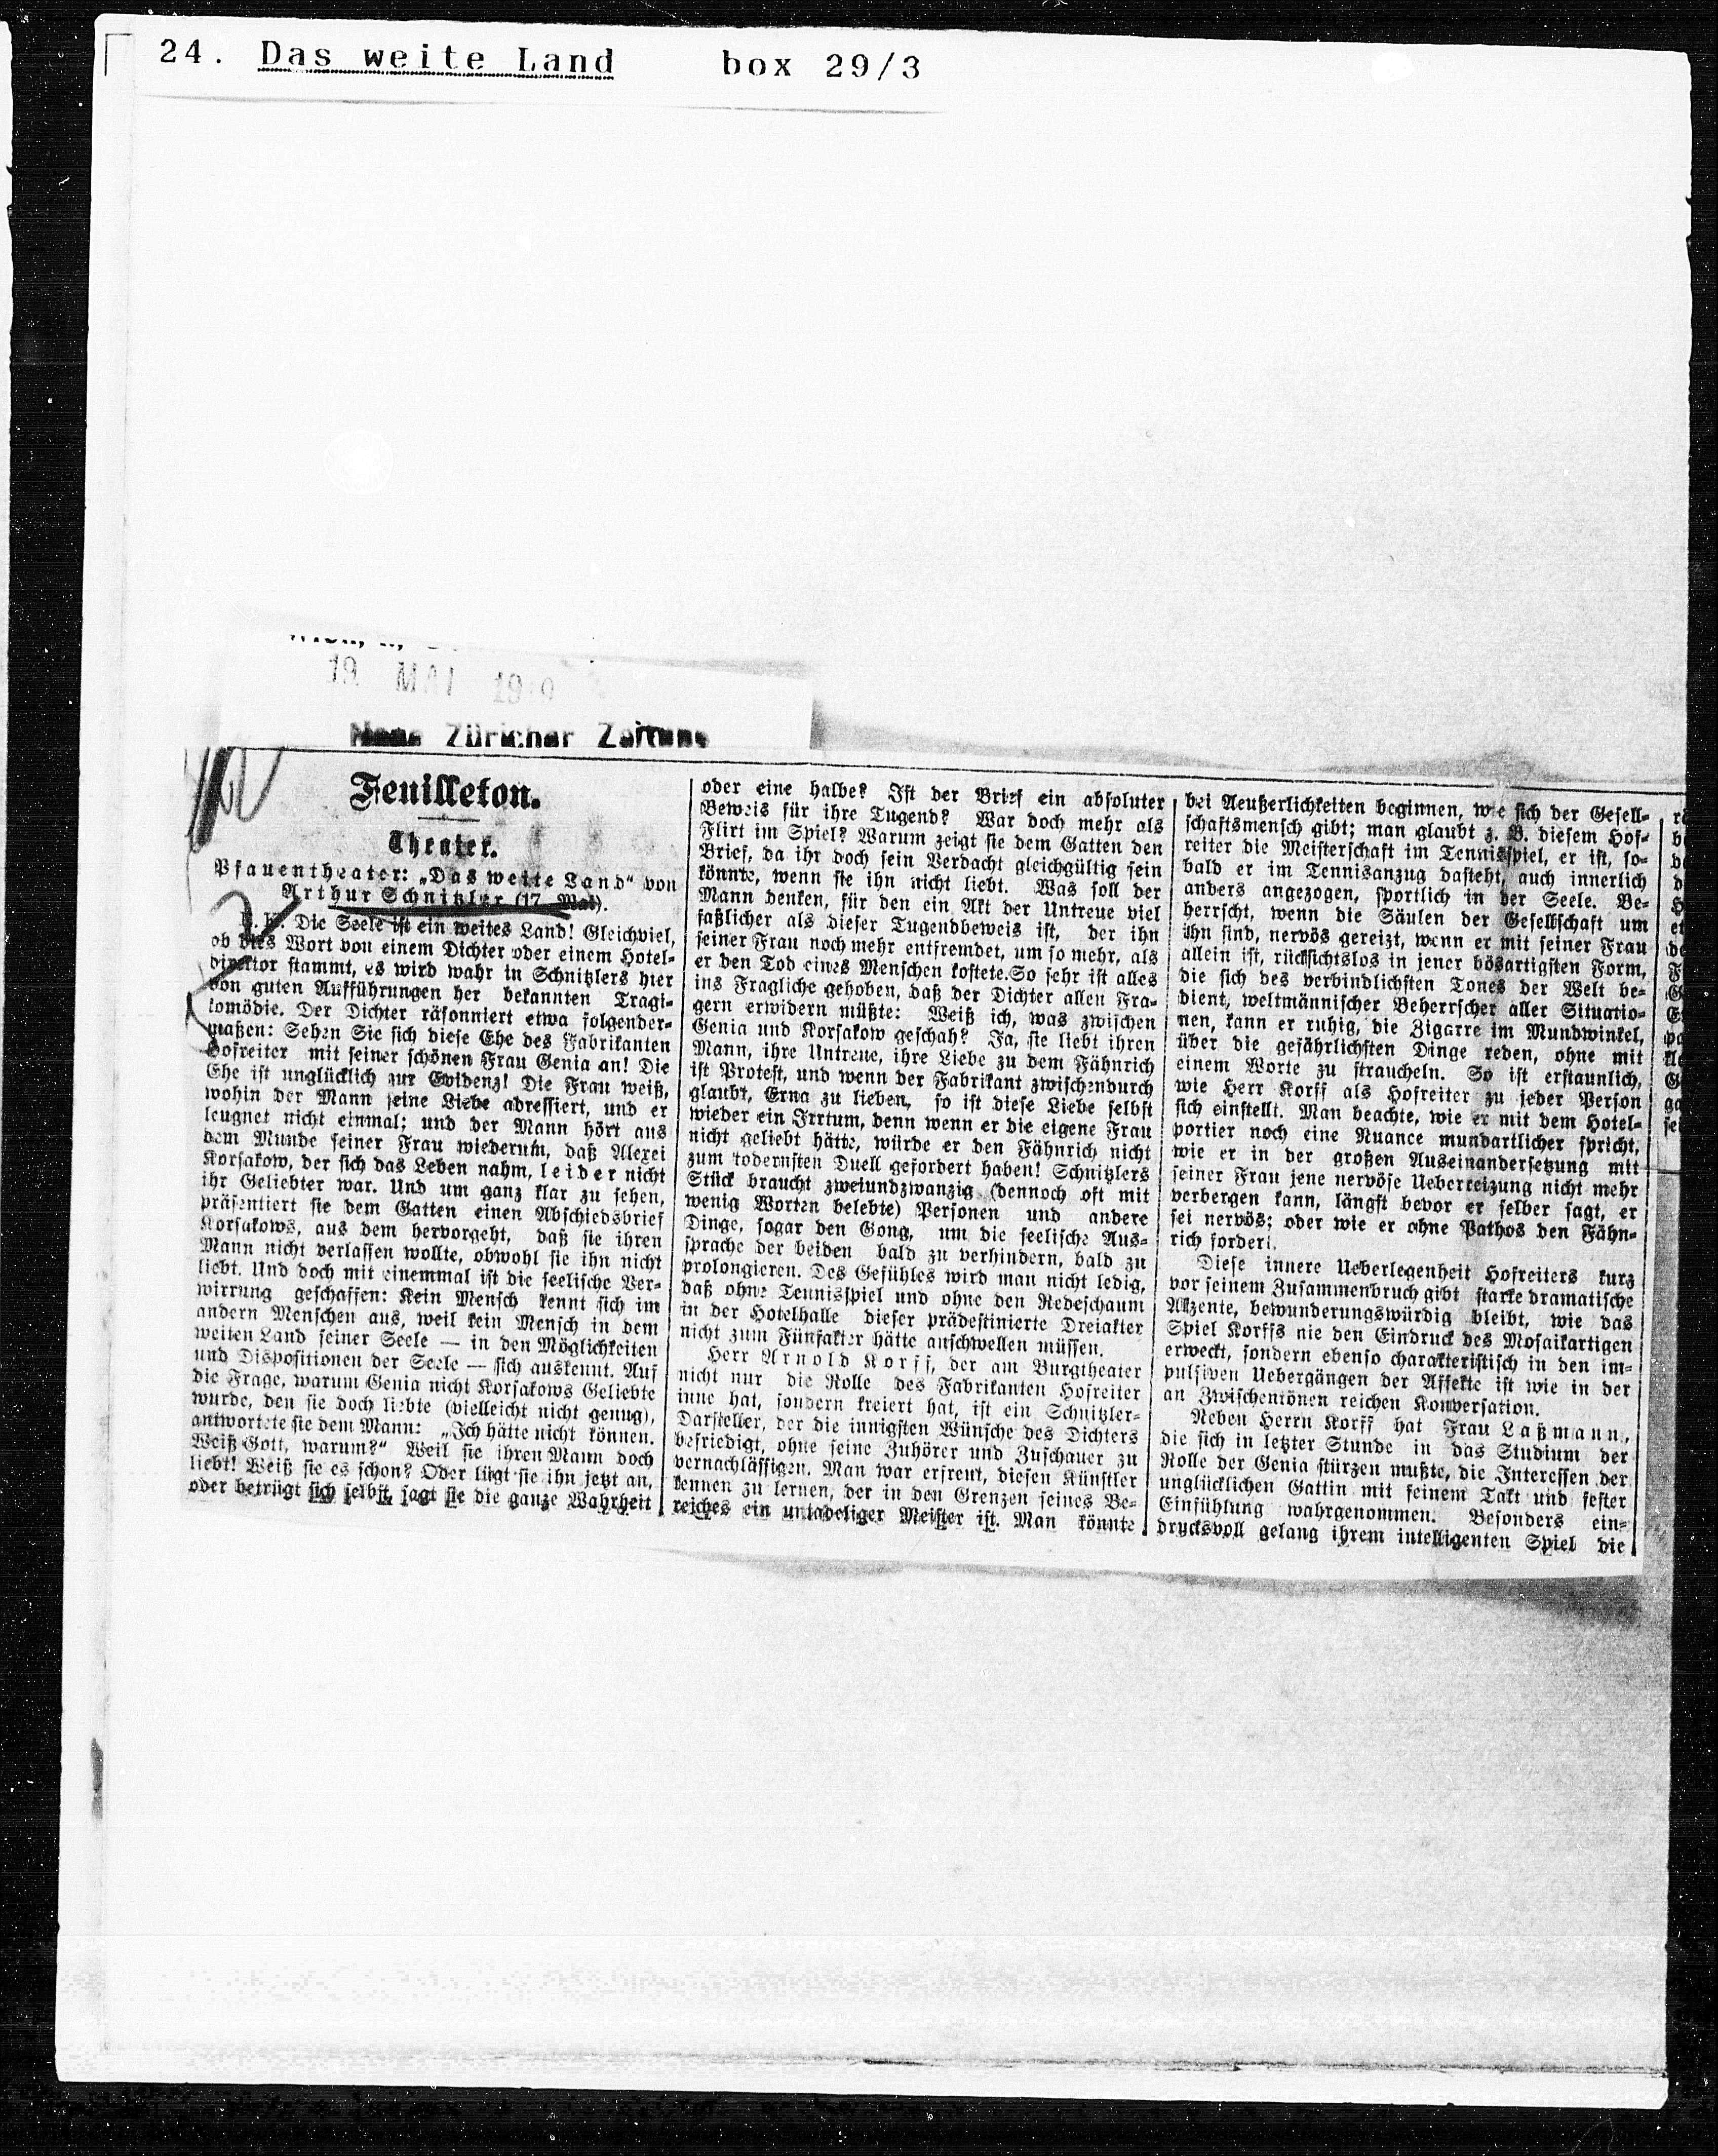 24. Das weite Land box 29/3
19 MAI
Neue Züricher Zeitung
Feuilleton.
Theater.
Pfauentheater: „Das weite Land“ von
Arthur Schnitzler (17. Mai).
Die Seele ist ein weites Land! Gleichviel,
ob dies Wort von einem Dichter oder einem Hotel-
direktor stammt, es wird wahr in Schnitzlers hier
von guten Aufführungen her bekannten Tragi-
komödie. Der Dichter räsonniert etwa folgender-
maßen: Sehen Sie sich diese Ehe des Fabrikanten
Hofreiter mit seiner schönen Frau Genia an! Die
Ehe ist unglücklich zur Evidenz! Die Frau weiß,
wohin der Mann seine Liebe adressiert, und er
leugnet nicht einmal; und der Mann hört aus
dem Munde seiner Frau wiederum, daß Alexei
Korsakow, der sich das Leben nahm, leider nicht
ihr Geliebter war. Und um ganz klar zu sehen,
präsentiert sie dem Gatten einen Abschiedsbrief
Korsakows, aus dem hervorgeht, daß sie ihren
Mann nicht verlassen wollte, obwohl sie ihn nicht
liebt. Und doch mit einemmal ist die seelische Ver-
wirrung geschaffen: Kein Mensch kennt sich im
andern Menschen aus, weil kein Mensch in dem
weiten Land seiner Seele — in den Möglichkeiten
und Dispositionen der Seele — sich auskennt. Auf
die Frage, warum Genia nicht Korsakows Geliebte
wurde, den sie doch liebte (vielleicht nicht genug),
antwortete sie dem Mann: „Ich hätte nicht können.
Weiß Gott, warum?“ Weil sie ihren Mann doch
liebt! Weiß sie es schon? Oder lügt sie ihn jetzt an,
oder betrügt sich selbst, sagt sie die ganze Wahrheit
oder eine halbe? Ist der Brief ein absoluter
Beweis für ihre Tugend? War doch mehr als
Flirt im Spiel? Warum zeigt sie dem Gatten den
Brief, da ihr doch sein Verdacht gleichgültig sein
könnte, wenn sie ihn nicht liebt. Was soll der
Mann denken, für den ein Akt der Untreue viel
faßlicher als dieser Tugendbeweis ist, der ihn
seiner Frau noch mehr entfremdet, um so mehr, als
er den Tod eines Menschen kostete. So sehr ist alles
ins Fragliche gehoben, daß der Dichter allen Fra-
gern erwidern müßte: Weiß ich, was zwischen
Genia und Korsakow geschah? Ja, sie liebt ihren
Mann, ihre Untreue, ihre Liebe zu dem Fähnrich
ist Protest, und wenn der Fabrikant zwischendurch
glaubt, Erna zu lieben, so ist diese Liebe selbst
wieder ein Irrtum, denn wenn er die eigene Frau
nicht geliebt hätte, würde er den Fähnrich nicht
zum todernsten Duell gefordert haben! Schnitzlers
Stück braucht zweiundzwanzig (dennoch oft mit
wenig Worten belebte) Personen und andere
Dinge, sogar den Gong, um die seelische Aus-
sprache der beiden bald zu verhindern, bald zu
prolongieren. Des Gefühles wird man nicht ledig,
daß ohne Tennisspiel und ohne den Redeschaum
in der Hotelhalle dieser prädestinierte Dreiakter
nicht zum Fünfakter hätte anschwellen müssen.
Herr Arnold Korff, der am Burgtheater
nicht nur die Rolle des Fabrikanten Hofreiter
inne hat, sondern kreiert hat, ist ein Schnitzler-
Darsteller, der die innigsten Wünsche des Dichters
befriedigt, ohne seine Zuhörer und Zuschauer zu
vernachlässigen. Man war erfreut, diesen Künstler
kennen zu lernen, der in den Grenzen seines Be-
reiches ein untadeliger Meister ist. Man könnte
bei Aeußerlichkeiten beginnen, wie sich der Gesell-
schaftsmensch gibt; man glaubt z. B. diesem Hof-
reiter die Meisterschaft im Tennisspiel, er ist, so-
bald er im Tennisanzug dasteht, auch innerlich
anders angezogen, sportlich in der Seele. Be-
herrscht, wenn die Säulen der Gesellschaft um
ihn sind, nervös gereizt, wenn er mit seiner Frau
allein ist, rücksichtslos in jener bösartigsten Form,
die sich des verbindlichsten Tones der Welt be-
dient, weltmännischer Beherrscher aller Situatio-
nen, kann er ruhig, die Zigarre im Mundwinkel,
über die gefährlichsten Dinge reden, ohne mit
einem Worte zu straucheln. So ist erstaunlich,
wie Herr Korff als Hofreiter zu jeder Person
sich einstellt. Man beachte, wie er mit dem Hotel-
portier noch eine Nuance mundartlicher spricht,
wie er in der großen Auseinandersetzung mit
seiner Frau jene nervöse Ueberreizung nicht mehr
verbergen kann, längst bevor er selber sagt, er
sei nervös; oder wie er ohne Pathos den Fähn-
rich fordert.
Diese innere Ueberlegenheit Hofreiters kurz
vor seinem Zusammenbruch gibt starke dramatische
Akzente, bewunderungswürdig bleibt, wie das
Spiel Korffs nie den Eindruck des Mosaikartigen
erweckt, sondern ebenso charakteristisch in den im-
pulsiven Uebergängen der Affekte ist wie in der
an Zwischentönen reichen Konversation.
Neben Herrn Korff hat Frau Laßmann,
die sich in letzter Stunde in das Studium der
Rolle der Genia stürzen mußte, die Interessen der
unglücklichen Gattin mit feinem Takt und fester
Einfühlung wahrgenommen. Besonders ein-
drucksvoll gelang ihrem intelligenten Spiel die